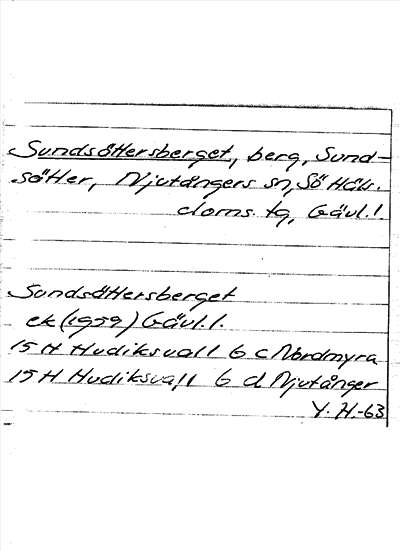 Sundsättersberget, berg, Sund-
sätter, Njutångers sn, Sö Häls.
doms. tg, Gävl. l.
Sundsättersberget
ek (1959) Gävl. l.
15 H Hudiksvall 6 c Nordmyra
15 H Hudiksvall 6 d Njutånger
Y. H.-63